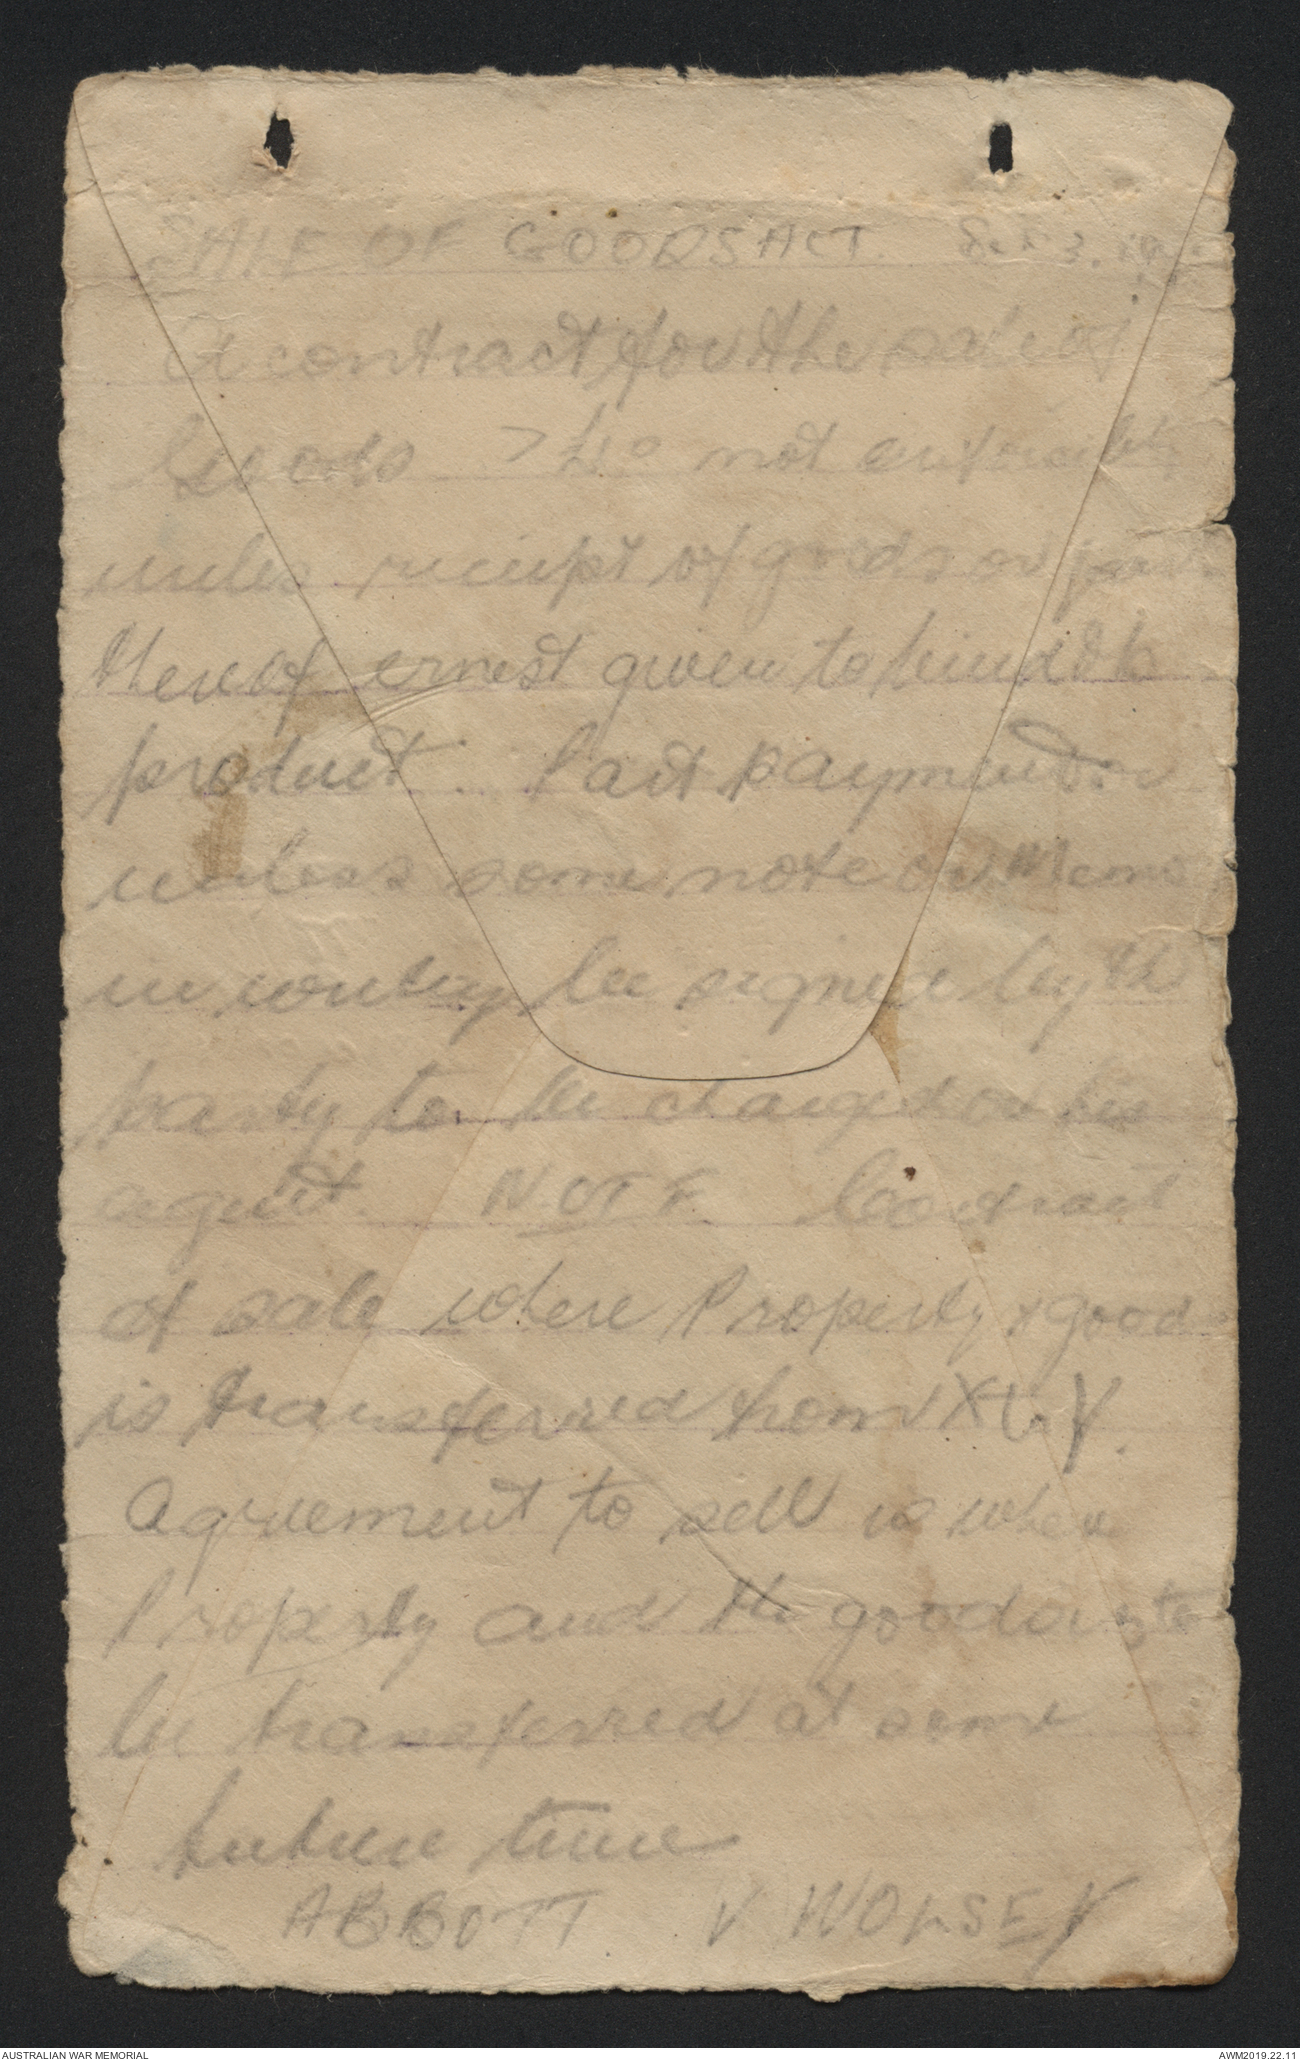 SALE OF GOODS ACT. Sect 3.
A contract for the sale of
Goods > £10 not enforceable
unless receipt of goods or part
thereof ernest given to bind the
product. Part payment or
unless some note or Memo
in writing be signed by the
party to be charged or his
agent. NOTE Contract
of sale where Property & goods
is transferred from X to Y.
Agreement to sell is where
Property and the good is to
be transferred at some
future time
ABBOTT V WOLSEY
AUSTRALIAN WAR MEMORIAL AWM2019.22.11